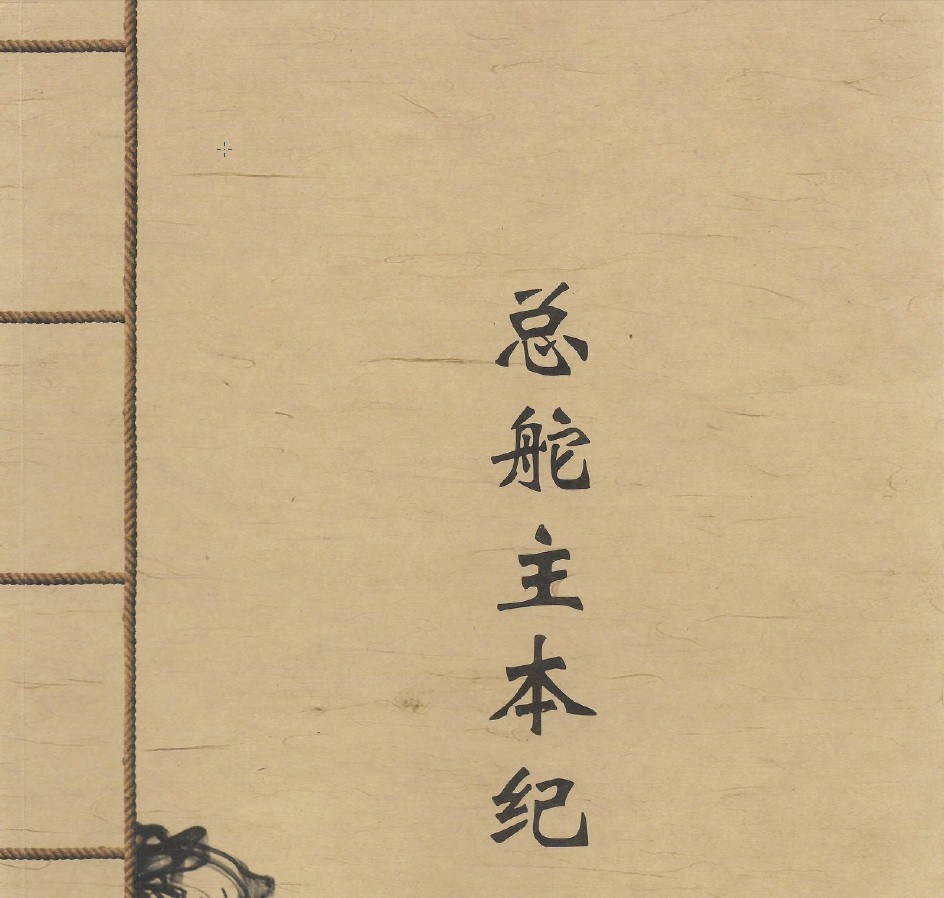 总舵主本纪